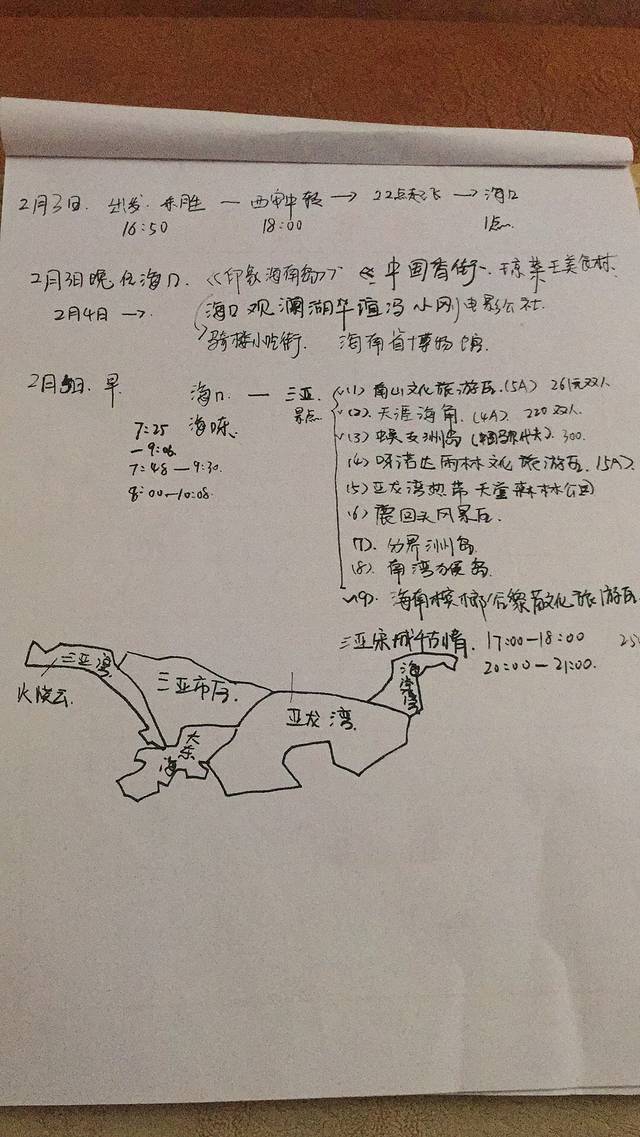 2月3日. 出发. 东胜 — 西安中转 → 22点起飞 → 海口
16:50 18:00 1点
2月3日晚 住海口. 《印象海南岛》 中国香街、琼菜王美食村.
2月4日 → 海口观澜湖华谊冯小刚电影公社
骑楼小吃街. 海南省博物馆.
2月5日. 早. 海口 — 三亚. (1) 南山文化旅游区. (5A) 261元双人
景点 (2). 天涯海角. (4A). 220 双人
7:25 (3) 蜈支洲岛 300.
—9:06
7:48 — 9:30. (4) 呀诺达雨林文化旅游区. (5A).
8:00—10:08. (5) 亚龙湾热带天堂森林公园
(6) 鹿回头风景区.
(7). 分界洲岛
(8). 南湾猴岛.
(9). 海南槟榔谷黎苗文化旅游区
三亚宋城千古情. 17:00—18:00
20:00—21:00.
三亚湾
三亚市区.
亚龙湾
海棠湾
大东海